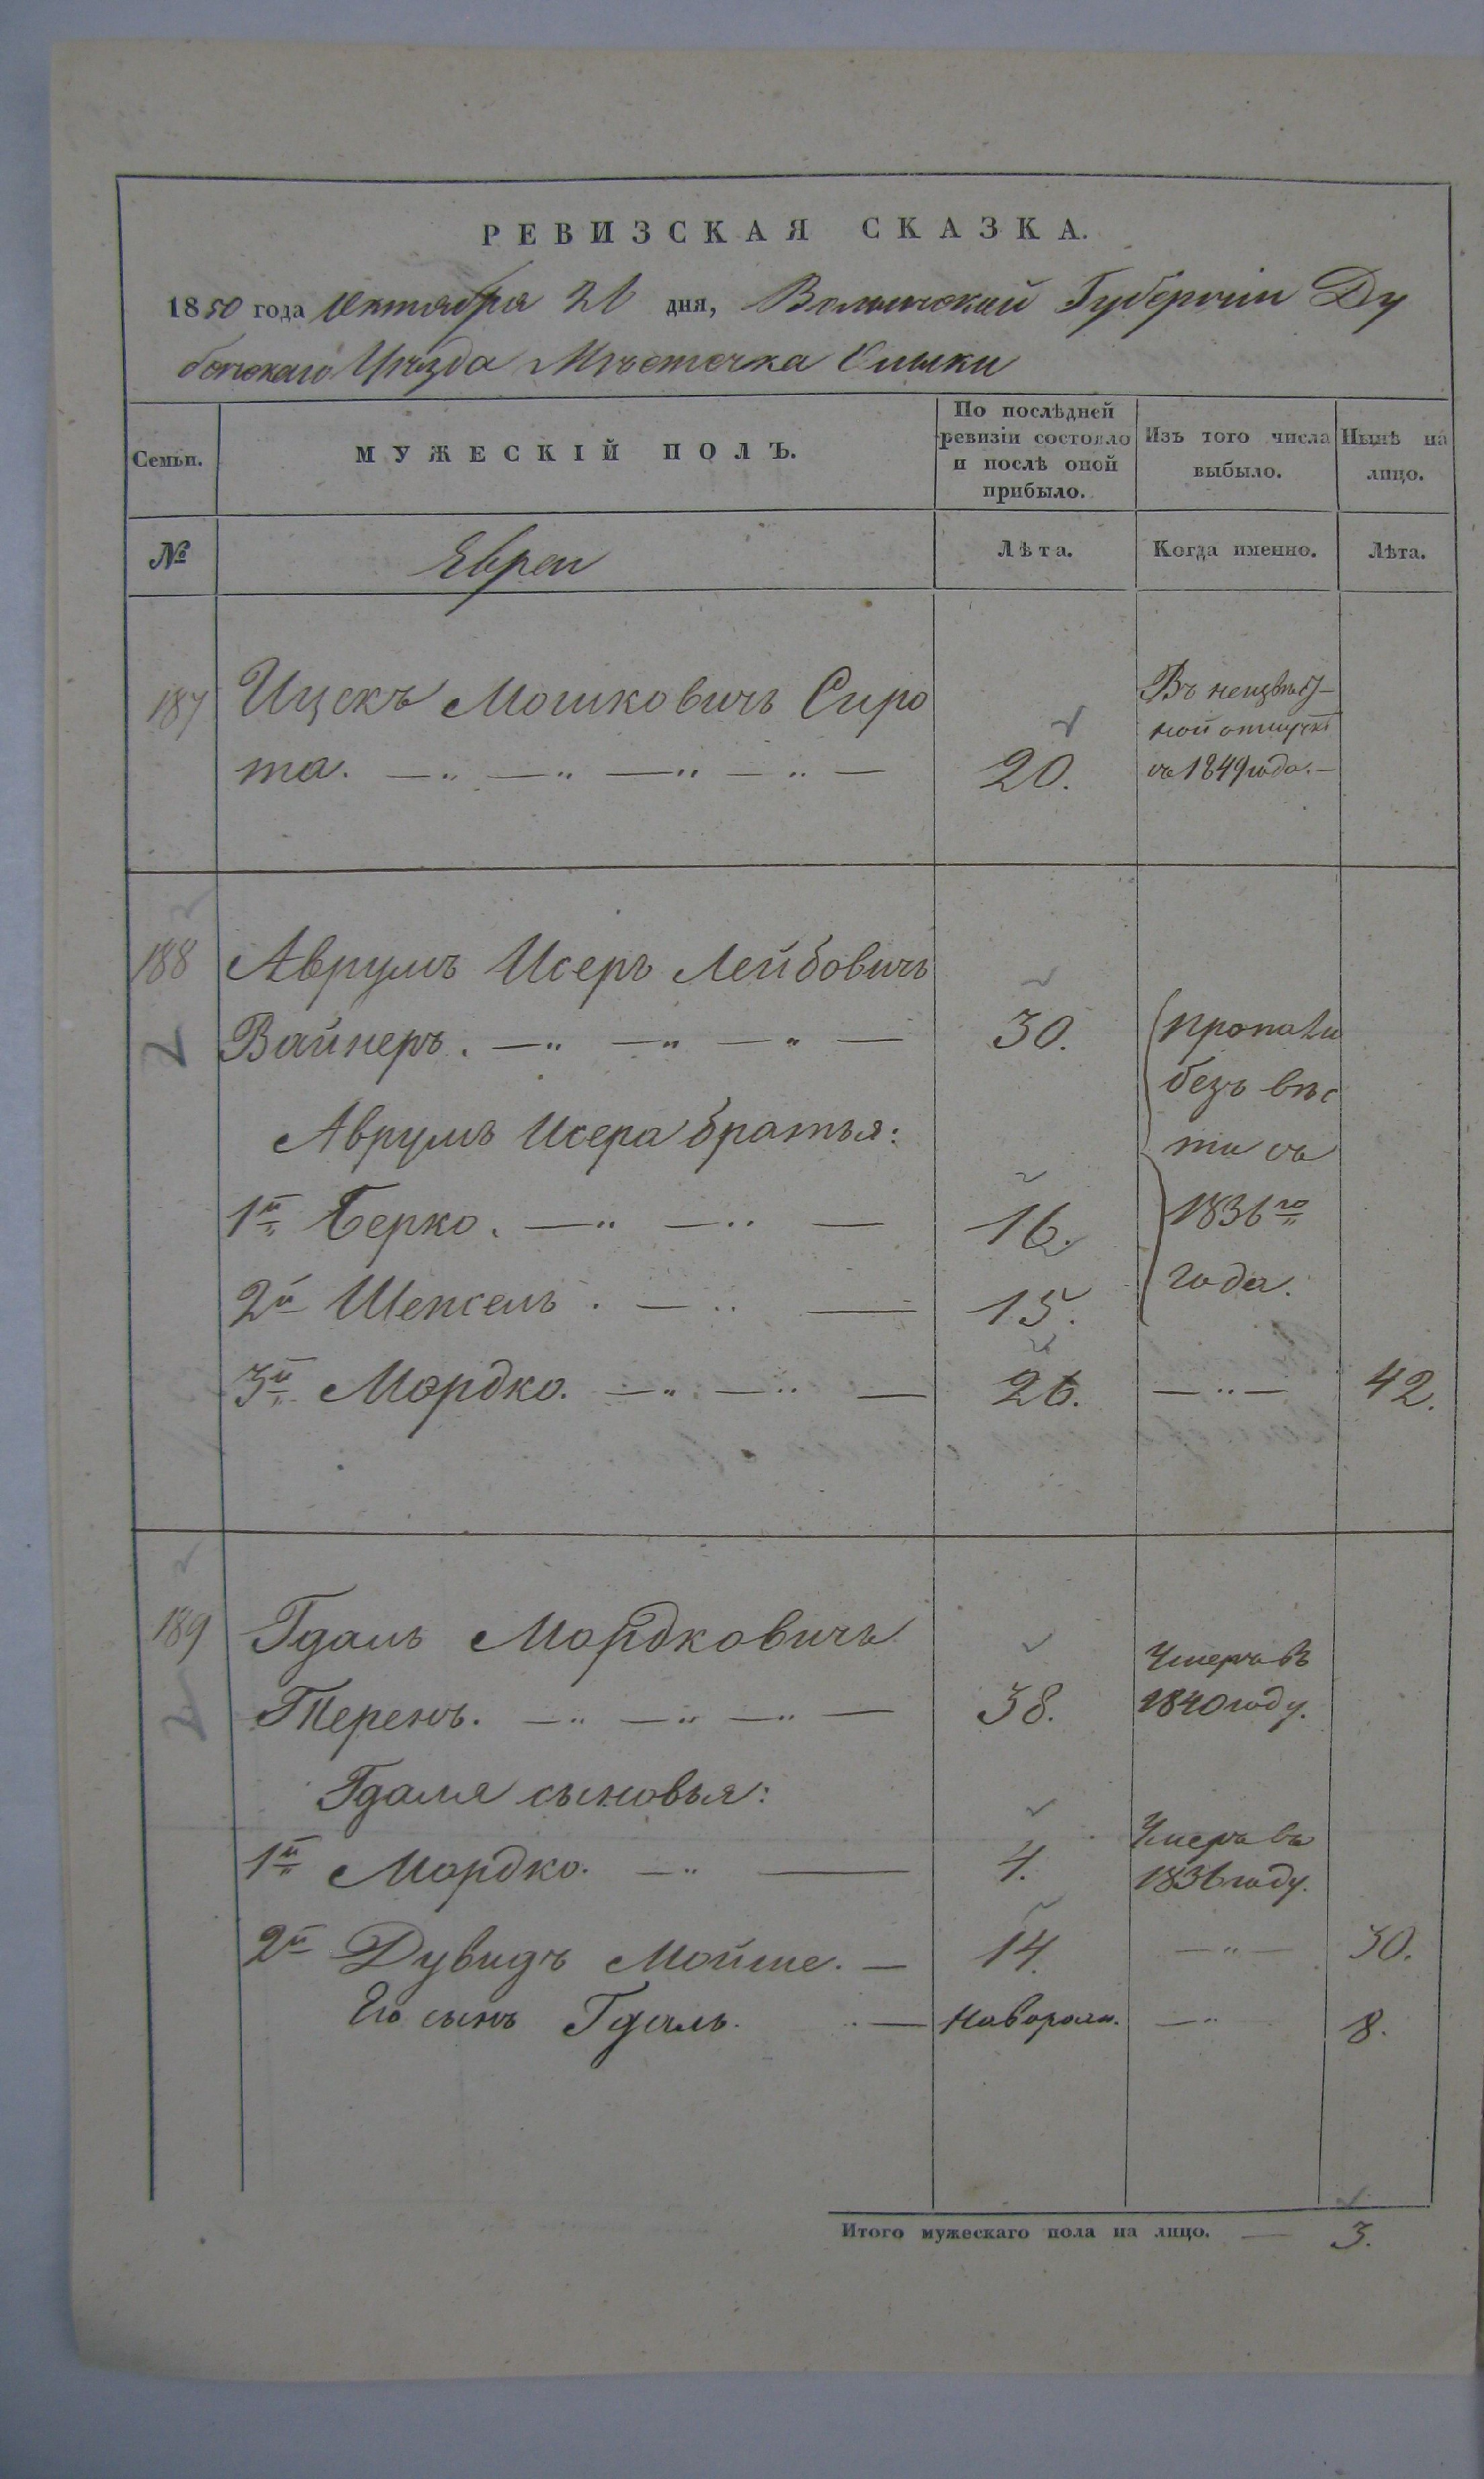 РЕВИЗСКАЯ СКАЗКА.
1850 года Октября 26 дня, Волынской Губернии Ду
бенскаго Уѣзда Мѣстечка Олыки
Семьи. МУЖЕСКІЙ ПОЛЪ. По послѣдней ревизіи состояло и послѣ оной прибыло. Изъ того числа выбыло. Нынѣ на лицо.
№ Евреи Лѣта. Когда именно. Лѣта.
187 Ицекъ Мошковичъ Сиро
та. — „ — „ — „ — „ — 20. Въ неизвѣст-
ной отлучкѣ
съ 1849 года. —
188 Аврумъ Исеръ Лейбовичъ
Вайнеръ. — „ — „ — „ — 30. пропали
безъ вѣс
Аврумъ Исера братья: ти съ
1й Берко. — „ — „ — 16. 1836го
2й Шепсель. — „ — 15. года.
3й Мордко. — „ — „ — 26. — „ — 42.
189 Гдаль Мордковичъ
Теренъ. — „ — „ — „ — 38. Умеръ въ
1840 году.
Гдаля сыновья:
1й Мордко. — „ — 4. Умеръ въ
1836 году.
2й Дувидъ Мойше. — 14. — „ — 30.
Его сынъ Гдаль. — Новорожд. — „ 8.
Итого мужескаго пола на лицо. — 3.